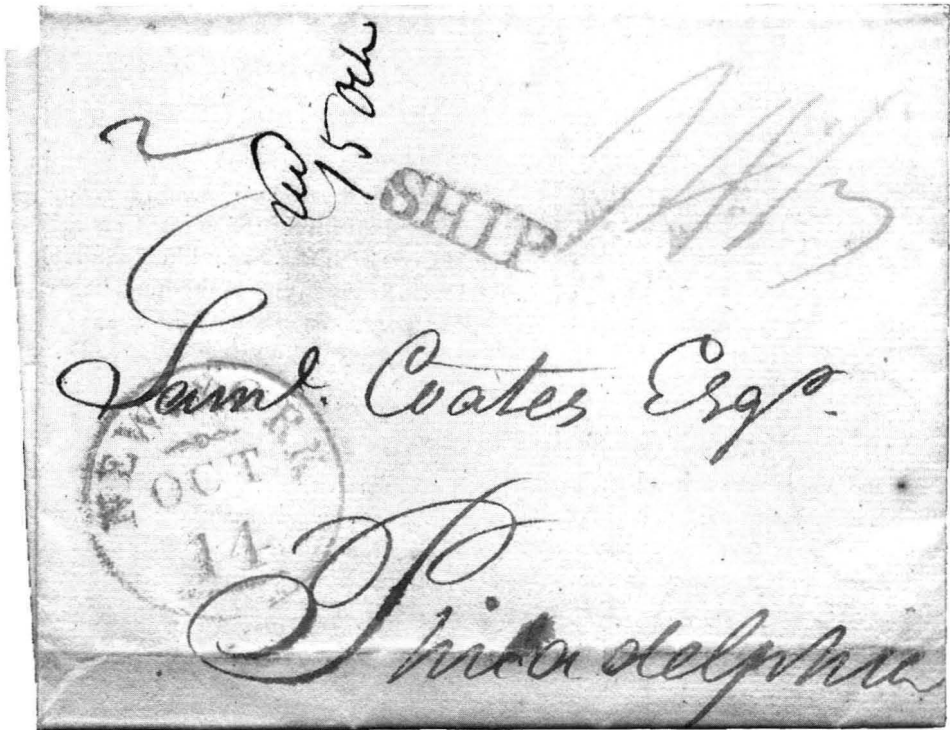 15 Oct
SHIP
Saml. Coates Esqr.
NEW YORK
OCT
14
Philadelphia